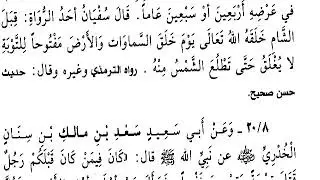 في عَرْضِهِ أَرْبَعِينَ أَوْ سَبْعِينَ عَاماً. قَالَ سُفْيَانُ أَحَدُ الرُّوَاةِ: قِبَلَ
الشَّامِ خَلَقَهُ اللهُ تَعَالَى يَوْمَ خَلَقَ السَّمَاوَاتِ وَالأَرْضَ مَفْتُوحاً لِلتَّوْبَةِ
لا يُغْلَقُ حَتَّى تَطْلُعَ الشَّمْسُ مِنْهُ. رواه الترمذي وغيره وقال: حديث
حسن صحيح.
٢٠/٨ - وَعَنْ أَبي سَعِيدٍ سَعْدِ بْنِ مالكِ بْنِ سِنَانٍ
الْخُدْرِيِّ ﷺ عن نَبِيِّ الله ﷺ قال: «كَانَ فِيمَنْ كَانَ قَبْلَكُمْ رَجُلٌ